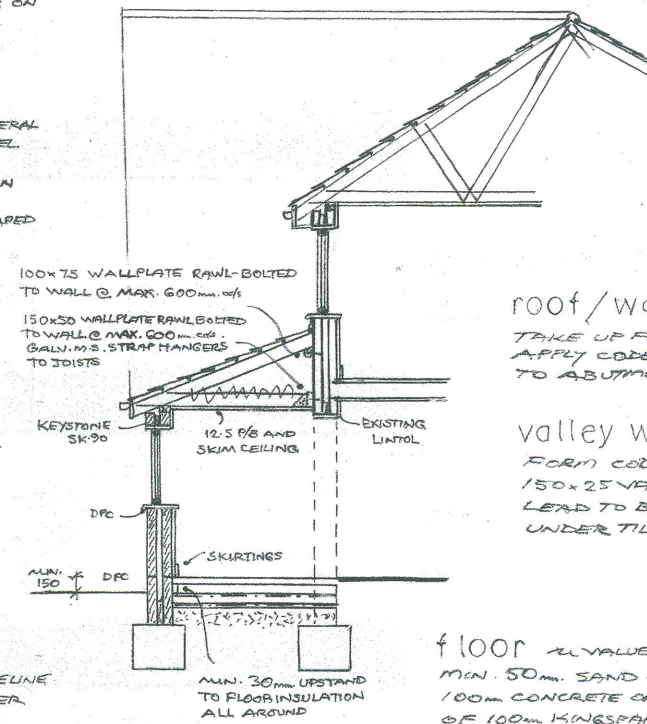 ON
ERAL
EL
N
APED
100x75 WALLPLATE RAWL-BOLTED
TO WALL @ MAX. 600mm. c/s
150x50 WALLPLATE RAWL BOLTED
TO WALL @ MAX. 600mm. c/s.
GALV. M.S. STRAP HANGERS
TO JOISTS
KEYSTONE
SK-90
12.5 P/B AND
SKIM CEILING
EXISTING
LINTOL
DPC
SKIRTINGS
MIN.
150
DPC
MIN. 30mm UPSTAND
TO FLOOR INSULATION
ALL AROUND
ELINE
ER
roof/wa
TAKE UP F
APPLY CODE
TO ABUTM
valley w
FORM COD
150x25 VA
LEAD TO B
UNDER TIL
floor U VALUE
MIN. 50mm. SAND
100mm CONCRETE O
OF 100mm KINGSPA